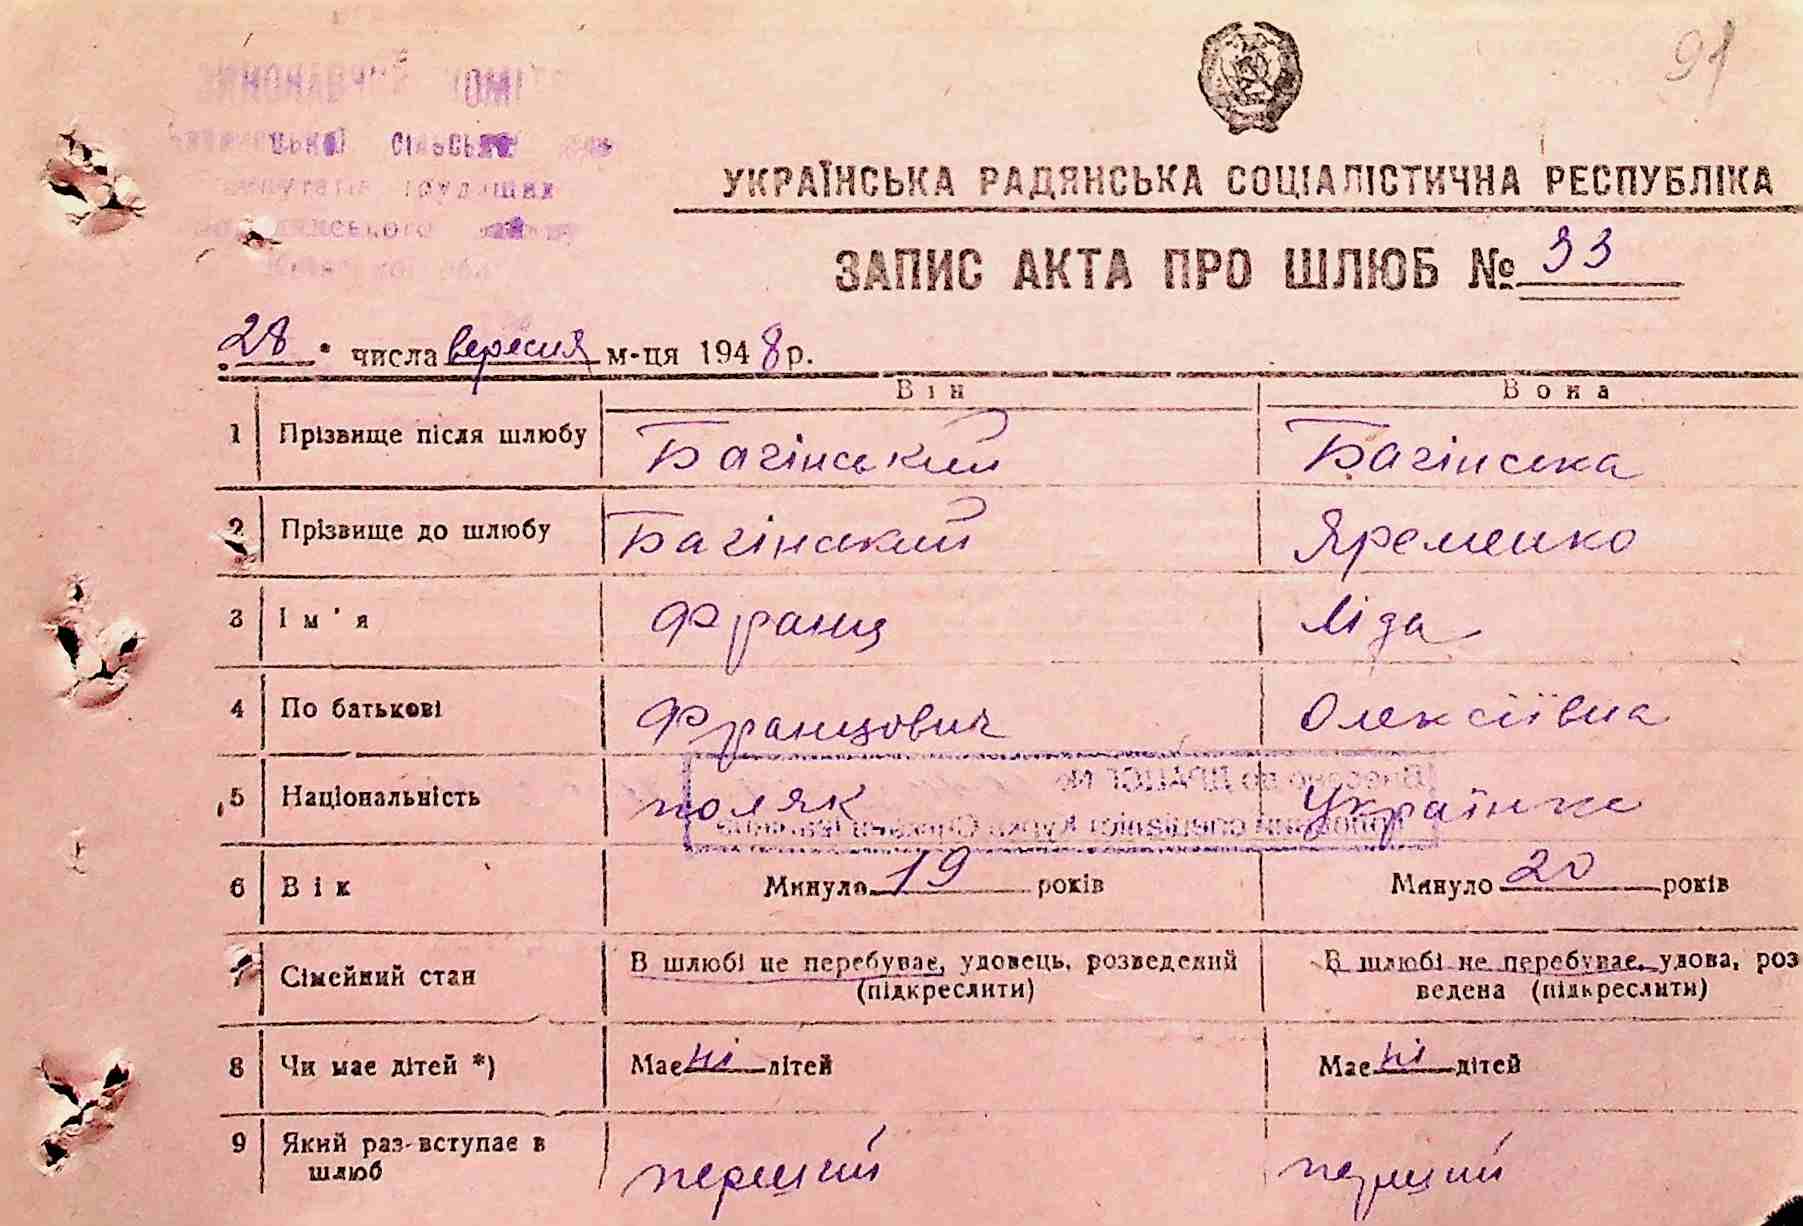 91
сільсь
трудящих
УКРАЇНСЬКА РАДЯНСЬКА СОЦІАЛІСТИЧНА РЕСПУБЛІКА
ЗАПИС АКТА ПРО ШЛЮБ № 33
28 числа вересня м-ця 1948 р.
Він Вона
1 Прізвище після шлюбу Багінський Багінська
2 Прізвище до шлюбу Багінський Яременко
3 Ім'я Франц Ліда
4 По батькові Францович Олексіївна
5 Національність поляк Українка
6 Вік Минуло 19 років Минуло 20 років
7 Сімейний стан В шлюбі не перебуває, удовець, розведений В шлюбі не перебуває, удова, роз
(підкреслити) ведена (підкреслити)
8 Чи має дітей *) Має ні дітей Має ні дітей
9 Який раз вступає в перший перший
шлюб